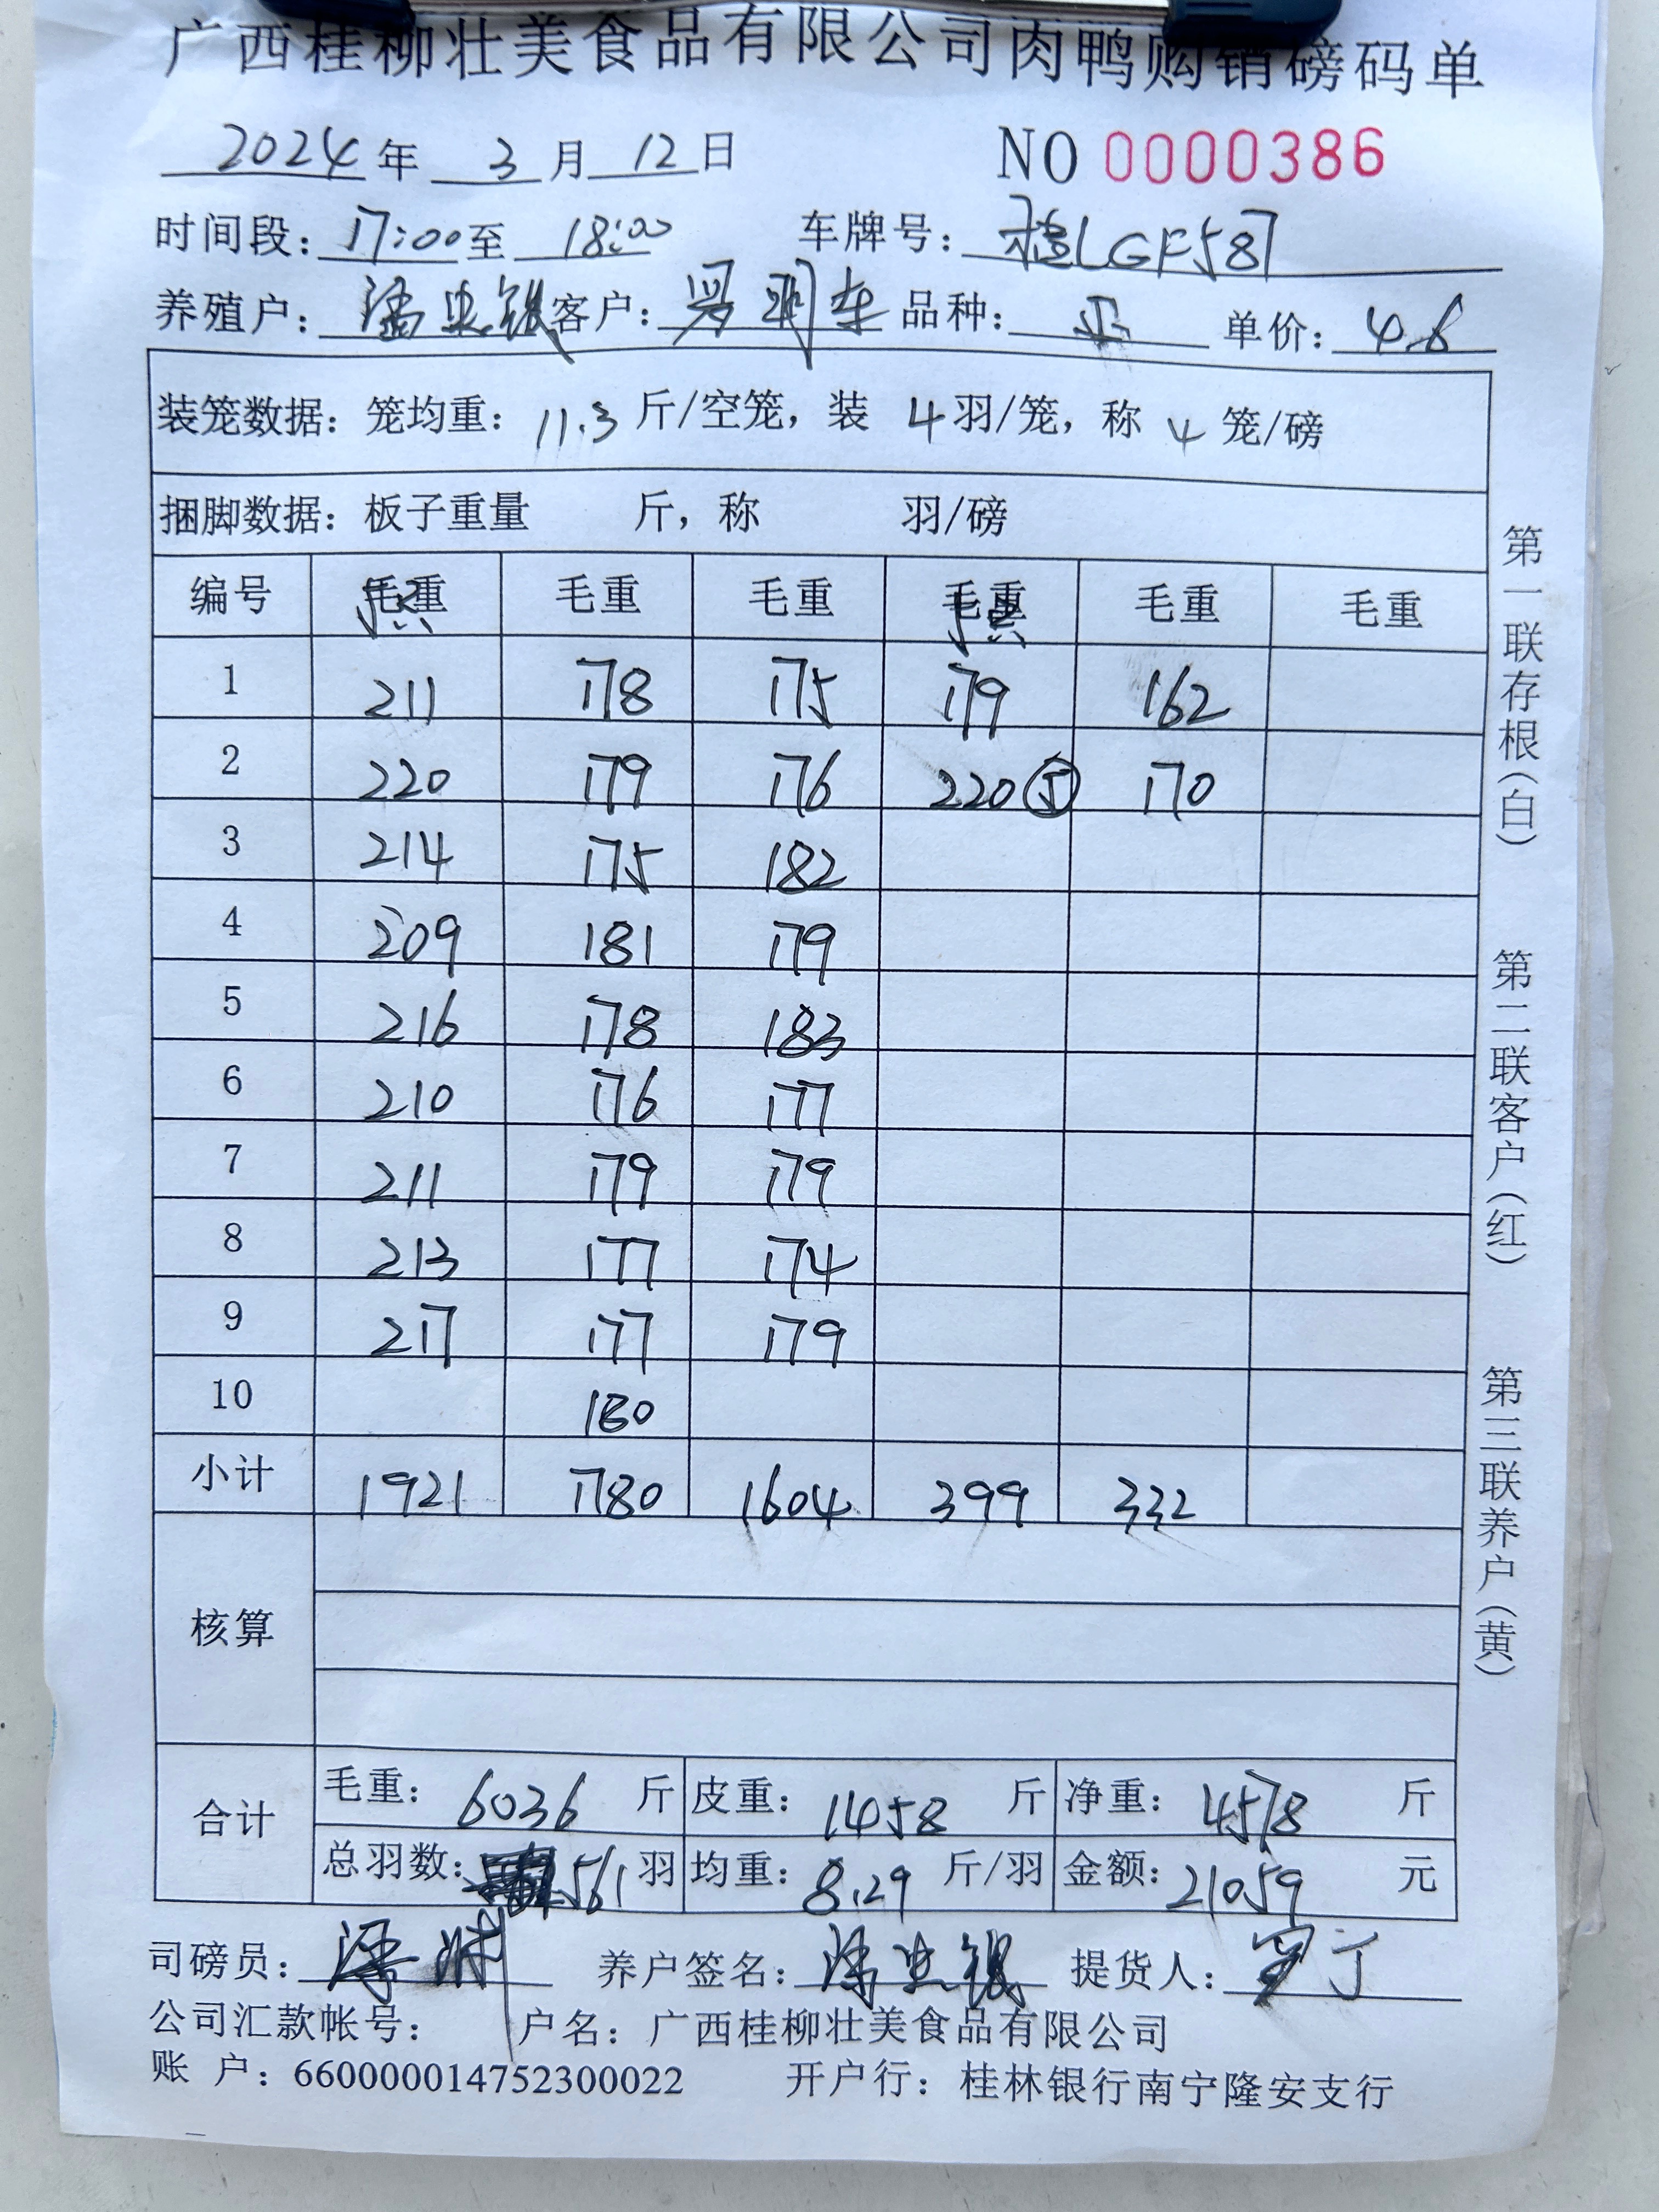 广西桂柳壮美食品有限公司肉鸭购销磅码单
2024年 3月 12日 NO 0000386
时间段：17:00至 18:00 车牌号：桂LGF587
养殖户： 客户： 品种： 单价：4.6
装笼数据：笼均重：11.3斤/空笼，装 4羽/笼，称 4笼/磅
捆脚数据：板子重量 斤，称 羽/磅
编号 毛重 毛重 毛重 毛重 毛重 毛重
1 211 178 175 179 162
2 220 179 176 220⑤ 170
3 214 175 182
4 209 181 179
5 216 178 183
6 210 176 177
7 211 179 179
8 213 177 174
9 217 177 179
10 180
小计 1921 1780 1604 399 332
核算
合计 毛重：6036斤 皮重：1458斤 净重：4578斤
总羽数：561羽 均重：8.29斤/羽 金额：21059元
司磅员： 养户签名： 提货人：
公司汇款帐号： 户名：广西桂柳壮美食品有限公司
账 户：660000014752300022 开户行：桂林银行南宁隆安支行
第一联存根（白） 第二联客户（红） 第三联养户（黄）